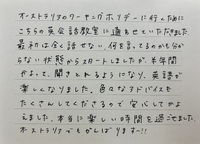 オーストラリアのワーキングホリデーに行くために
こちらの英会話教室に通わせていただきました
最初は全く話せない、何を言ってるのかも分か
らない状態からスタートしましたが、半年間
やって、聞きとれるようになり、英語が
楽しくなりました。色々なアドバイスも
たくさんしてくださるので安心してかよ
えました。本当に楽しい時間を過ごせました。
オーストラリアでもがんばります!!